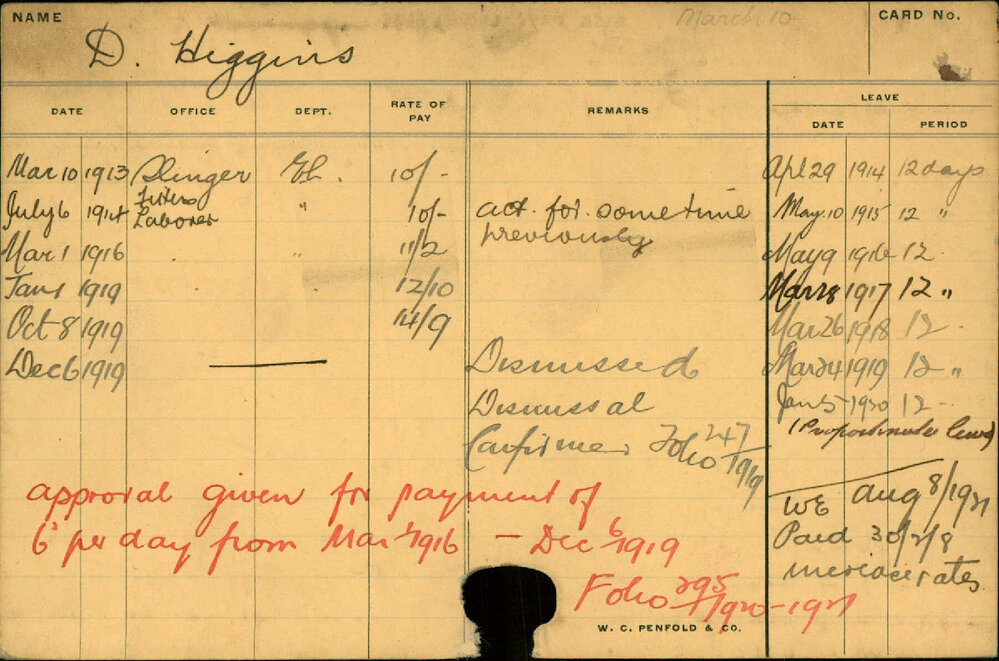 NAME
March 10
CARD No.
D. Higgins
DATE OFFICE DEPT. RATE OF PAY REMARKS LEAVE
DATE PERIOD
Mar 10 1913 Slinger Eh. 10/- Apl 29 1914 12 days
July 6 1914 Fitters Laborer " 10/- act. for some time May. 10 1915 12 "
previously
Mar 1 1916 " 11/2 May 9 1916 12
Jan 1 1919 12/10 Mar 28 1917 12 "
Oct 8 1919 14/9 Mar 26 1918 12
Dec 6 1919 — Dismissed Mar 24 1919 12 "
Dismissal Jan 5 1920 12
Confirmed Folio 247/1919 (Proportionate leave)
approval given for payment of
6d per day from Mar 1 1916 — Dec 6 1919
Folio 295/1920-1921
WE Aug 8/1921
Paid 30/2/8
increase rates
W. C. PENFOLD & CO.